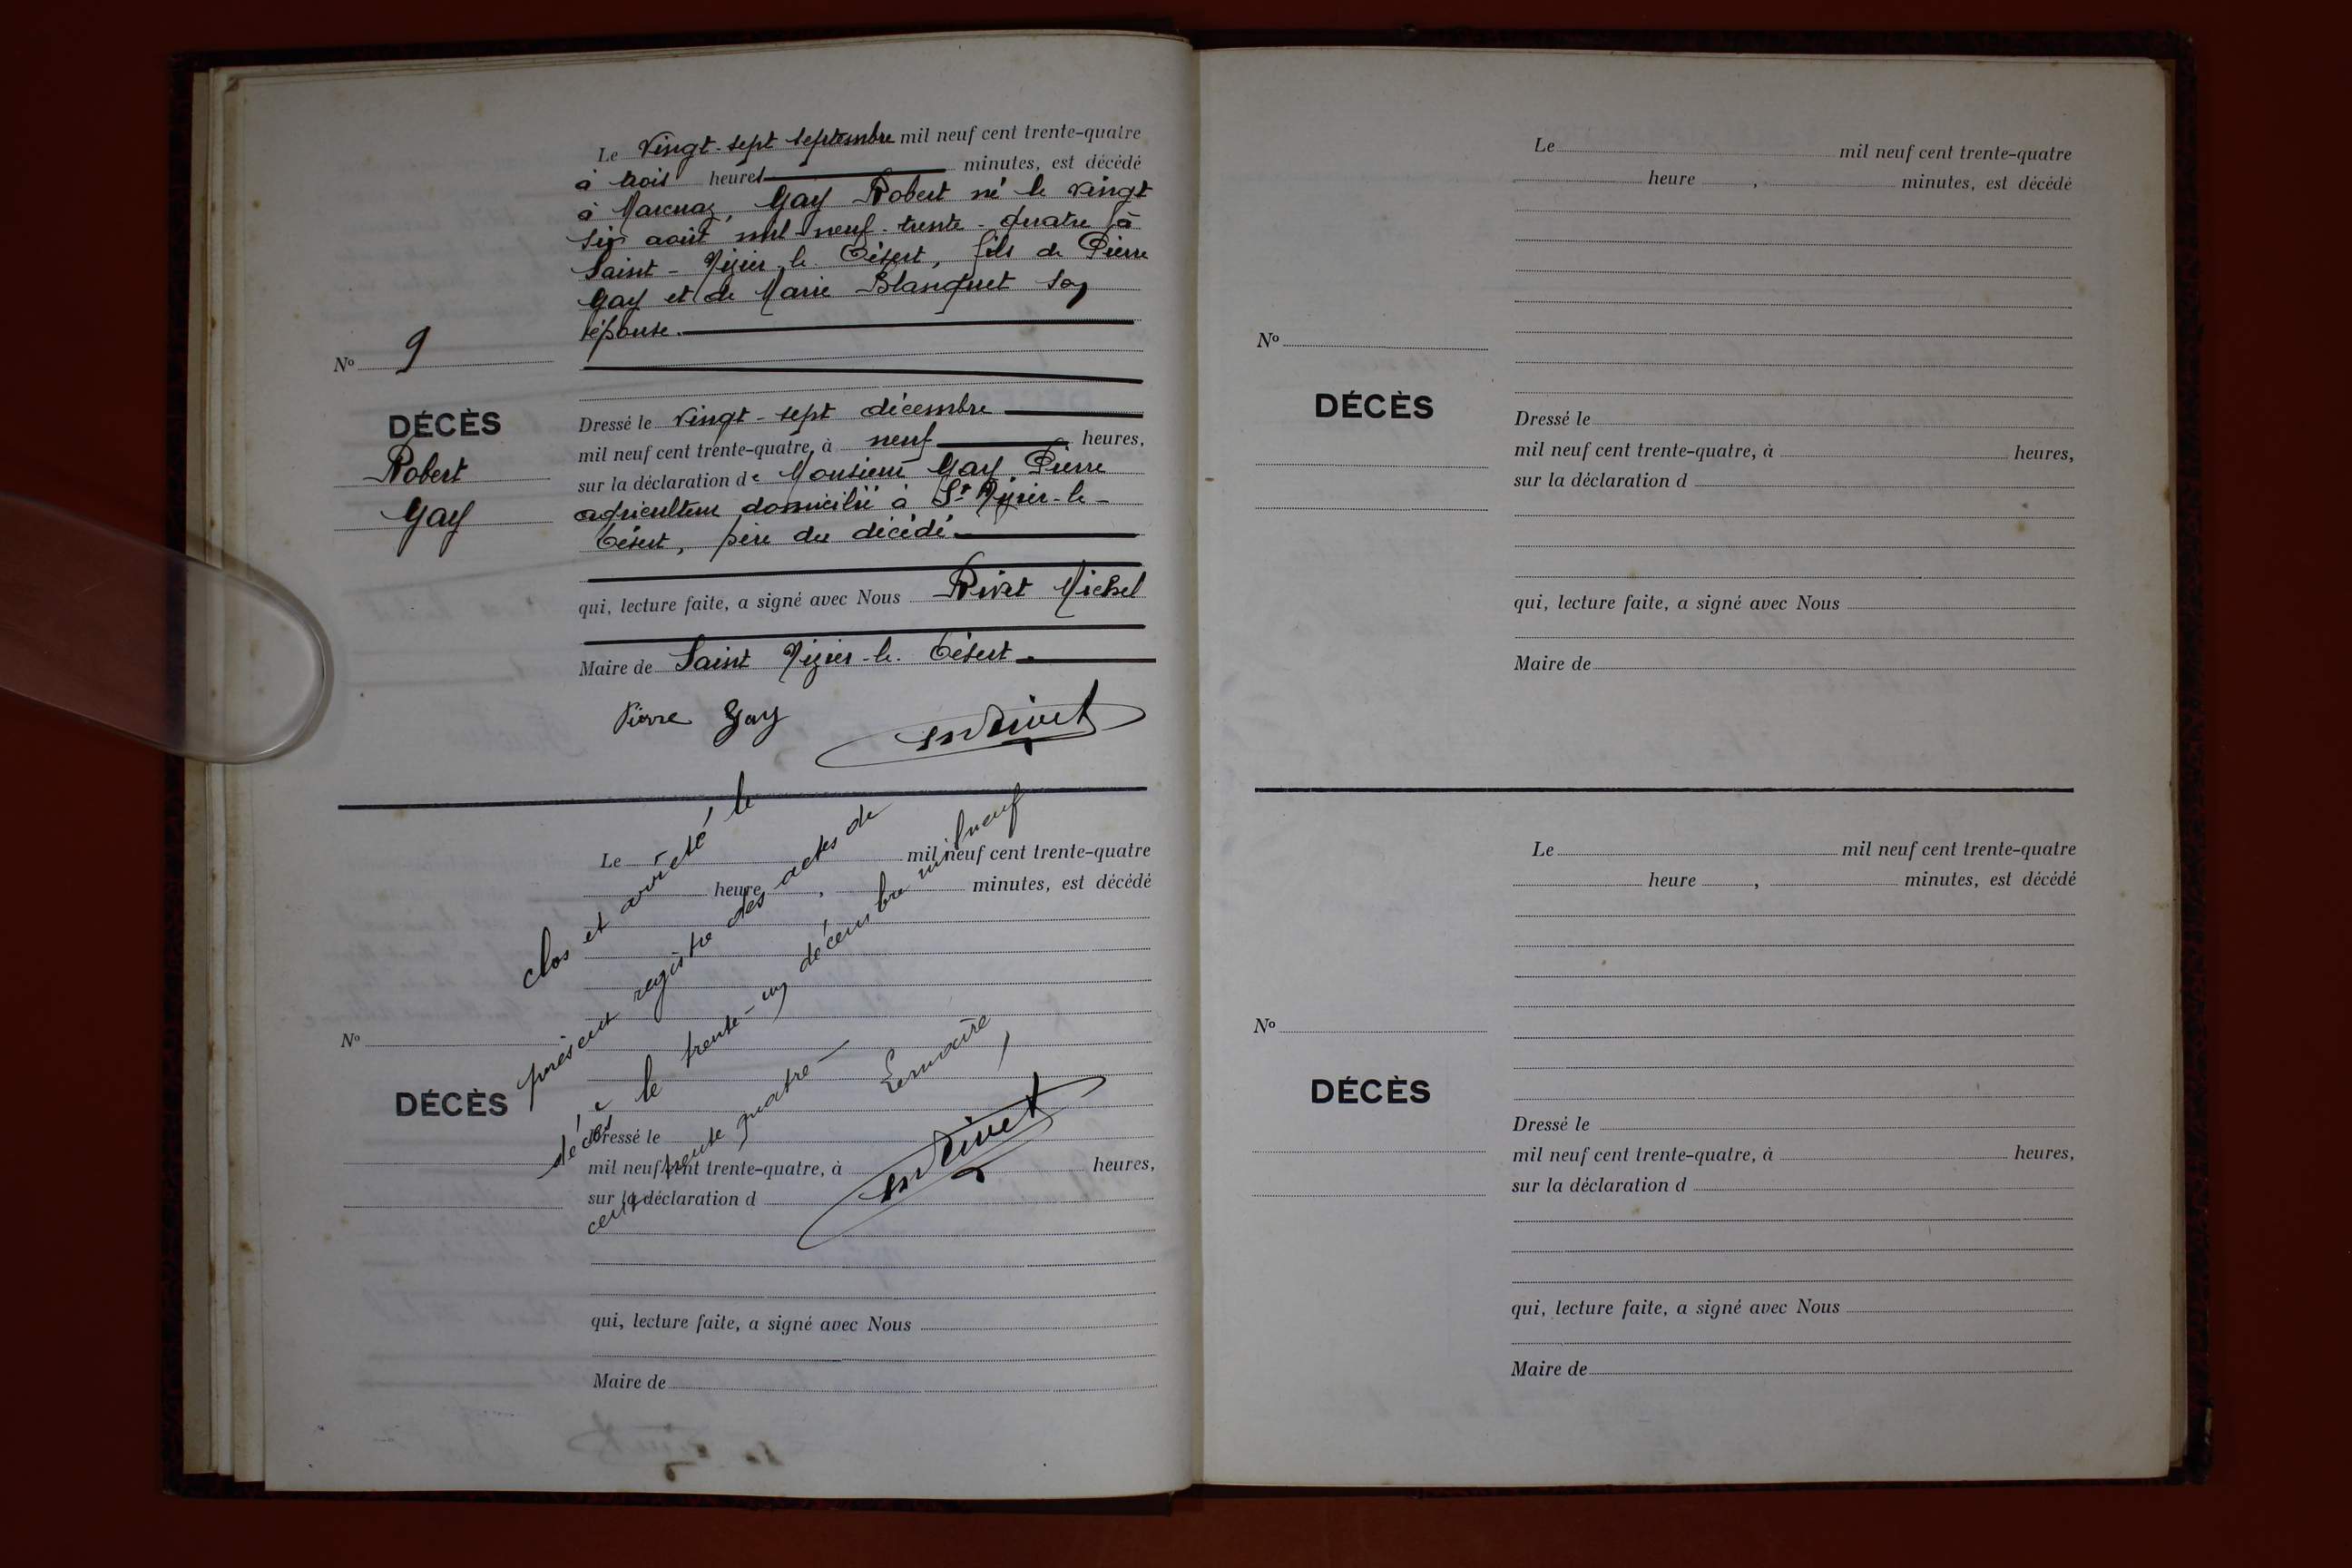 Le Vingt-sept septembre mil neuf cent trente-quatre
à trois heures minutes, est décédé
à Marcnaz, Gay Robert né le vingt
six août mil neuf-trente-quatre à
Saint-Nizier-le-Désert, fils de Pierre
Gay et de Marie Blanquet son
épouse.
Nº 9
DÉCÈS
Robert
Gay
Dressé le vingt-sept décembre
mil neuf cent trente-quatre, à neuf heures,
sur la déclaration de Monsieur Gay Pierre
agriculteur domicilié à St Nizier-le-
Désert, père du décédé.
qui, lecture faite, a signé avec Nous Rivet Michel
Maire de Saint Nizier-le-Désert.
Pierre Gay
M Rivet
Le mil neuf cent trente-quatre
heure , minutes, est décédé
Nº
DÉCÈS
Dressé le
mil neuf cent trente-quatre, à heures,
sur la déclaration d
qui, lecture faite, a signé avec Nous
Maire de
clos et arrêté, le
présent registre des actes de
décès le trente-un décembre mil neuf
cent trente quatre
Le maire,
M Rivet
Le mil neuf cent trente-quatre
heure , minutes, est décédé
Nº
DÉCÈS
Dressé le
mil neuf cent trente-quatre, à heures,
sur la déclaration d
qui, lecture faite, a signé avec Nous
Maire de
Le mil neuf cent trente-quatre
heure , minutes, est décédé
Nº
DÉCÈS
Dressé le
mil neuf cent trente-quatre, à heures,
sur la déclaration d
qui, lecture faite, a signé avec Nous
Maire de